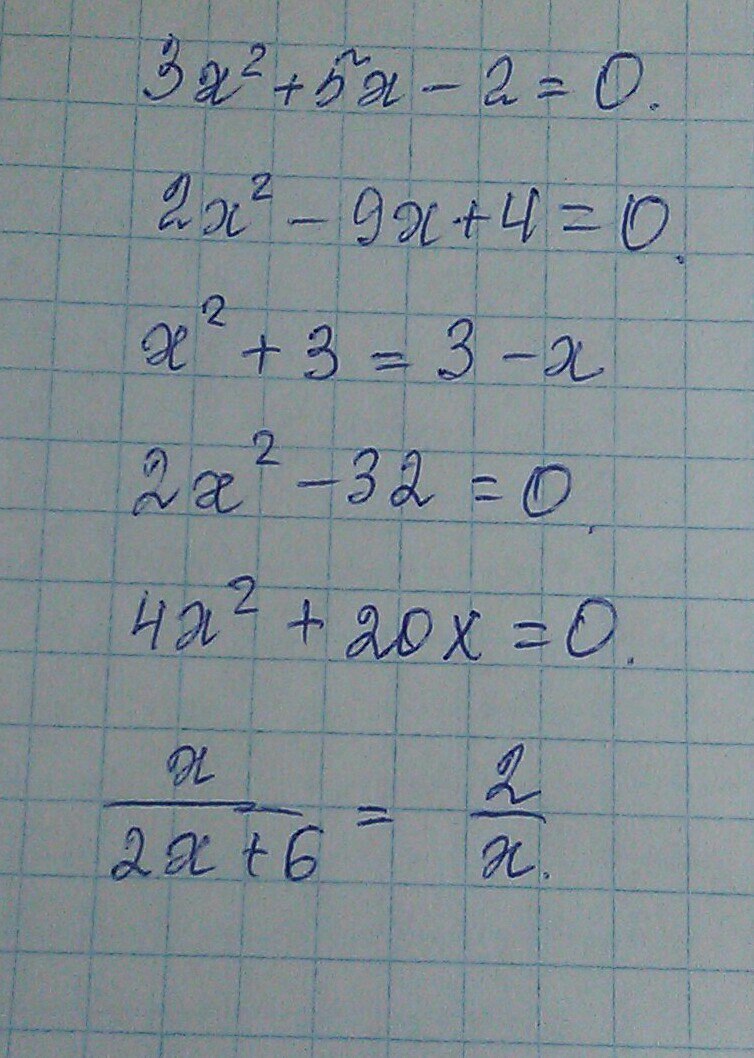 3x² + 5x - 2 = 0.
2x² - 9x + 4 = 0.
x² + 3 = 3 - x
2x² - 32 = 0.
4x² + 20x = 0.
x/(2x + 6) = 2/x.